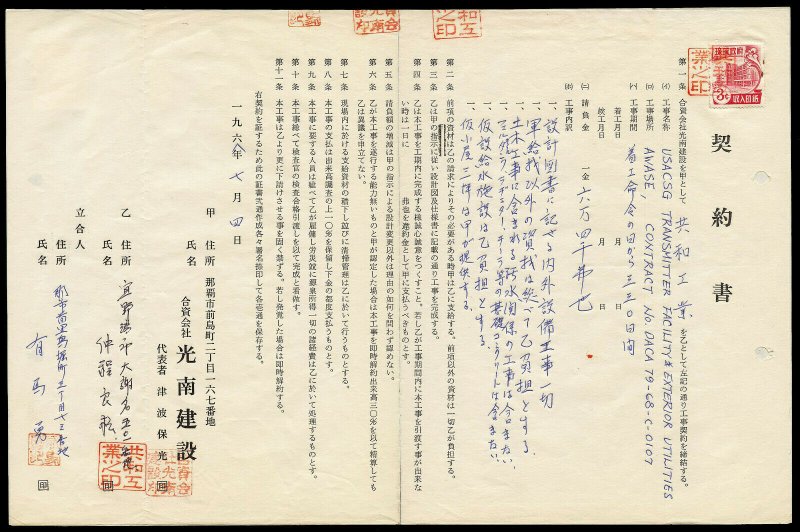 契約書
第一条 合資会社光南建設を甲として 共和工業 を乙として左記の通り工事契約を締結する。
(イ)工事名称 USACSG TRANSMITTER FACILITY & EXTERIOR UTILITIES
(ロ)工事場所 AWASE, CONTRACT No. DACA 79-68-C-0107
(ハ)工事期間 着工命令の日から三三〇日間
着工月日 月 日
竣工月日 月 日
(ニ)請負金 一金 六万四千弗也
(ホ)工事内訳
一、設計図書に記せる内外設備工事一切
一、軍給材以外の資材は総べて乙負担とする。
土木工事に含まれる 水関係の工事は含まない
一、仮設給水施設は乙負担とする。
一、仮小屋三件は甲が提供する。
第二条 前項の資材は乙の請求によりその必要がある時甲は乙に支給する。前項以外の資材は一切乙が負担する。
第三条 乙は甲の指示に従い設計図及仕様書に記載の通り工事を完成する。
第四条 乙は本工事を工期内に完成する様誠心誠意をつくすこと。若し乙が工事期間内に本工事を引渡す事が出来な
い時は一日に 弗也を違約金として甲に支払うべきものとす。
第五条 請負額の増減は甲の指示による設計変更以外は理由の如何を問わず認めない。
第六条 乙が本工事を遂行する能力無いものと甲が認定した場合は本工事を即時解約出来高三〇%を以て精算しても
乙は異議を申立てない。
第七条 現場内に於ける支給資材の積下し並びに清掃管理は乙に於いて行うものとする。
第八条 本工事の支払は出来高調査の上一〇%を保留し下金の都度支払うものとす。
第九条 本工事に要する人員は総べて乙が雇傭し労災険に源泉所得一切の諸経費は乙に於いて処理するものとす。
第十条 本工事総べて検査官の検査合格引渡しを以て完成と看做す。
第十一条 本工事は乙より更に下請けさせる事を固く禁ずる。若し発覚した場合は即時解約する。
右契約を証するため此の証書弐通作成各々署名捺印して各壱通を保有する。
一九六八年七月四日
甲 住所 那覇市前島町二丁目一六七番地
氏名 合資会社 光南建設
代表者 津波保光 ㊞
乙 住所 宜野湾市大謝名
氏名 仲程 ㊞
立合人
住所 那覇市 丁目 番地
氏名 有馬勇 ㊞
琉球政府
収入印紙
共和工業之印